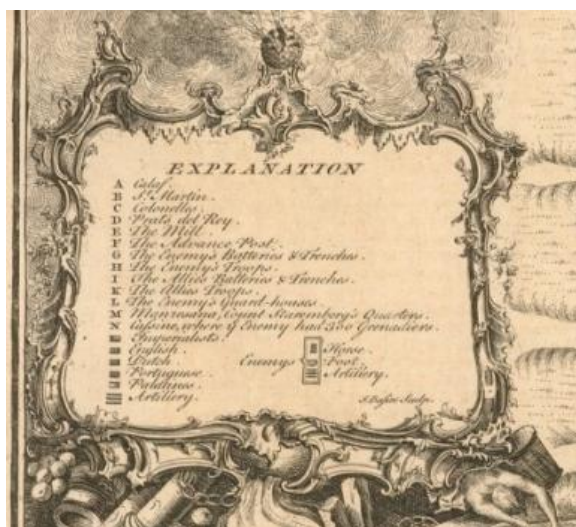 EXPLANATION
A Calaf.
B St. Martin.
C Colonelles.
D Prats del Rey.
E The Mill.
F The Advance Post.
G The Enemy's Batteries & Trenches.
H The Enemy's Troops.
I The Allies Batteries & Trenches.
K The Allies Troops.
L The Enemy's Guard-houses.
M Manresana, Count Staremberg's Quarters.
N Cassine, where ye Enemy had 350 Grenadiers.
Imperialists.
English.
Dutch.
Portuguese.
Palatines.
Artillery.
Enemys
Horse.
Foot.
Artillery.
J. Basire Sculp.